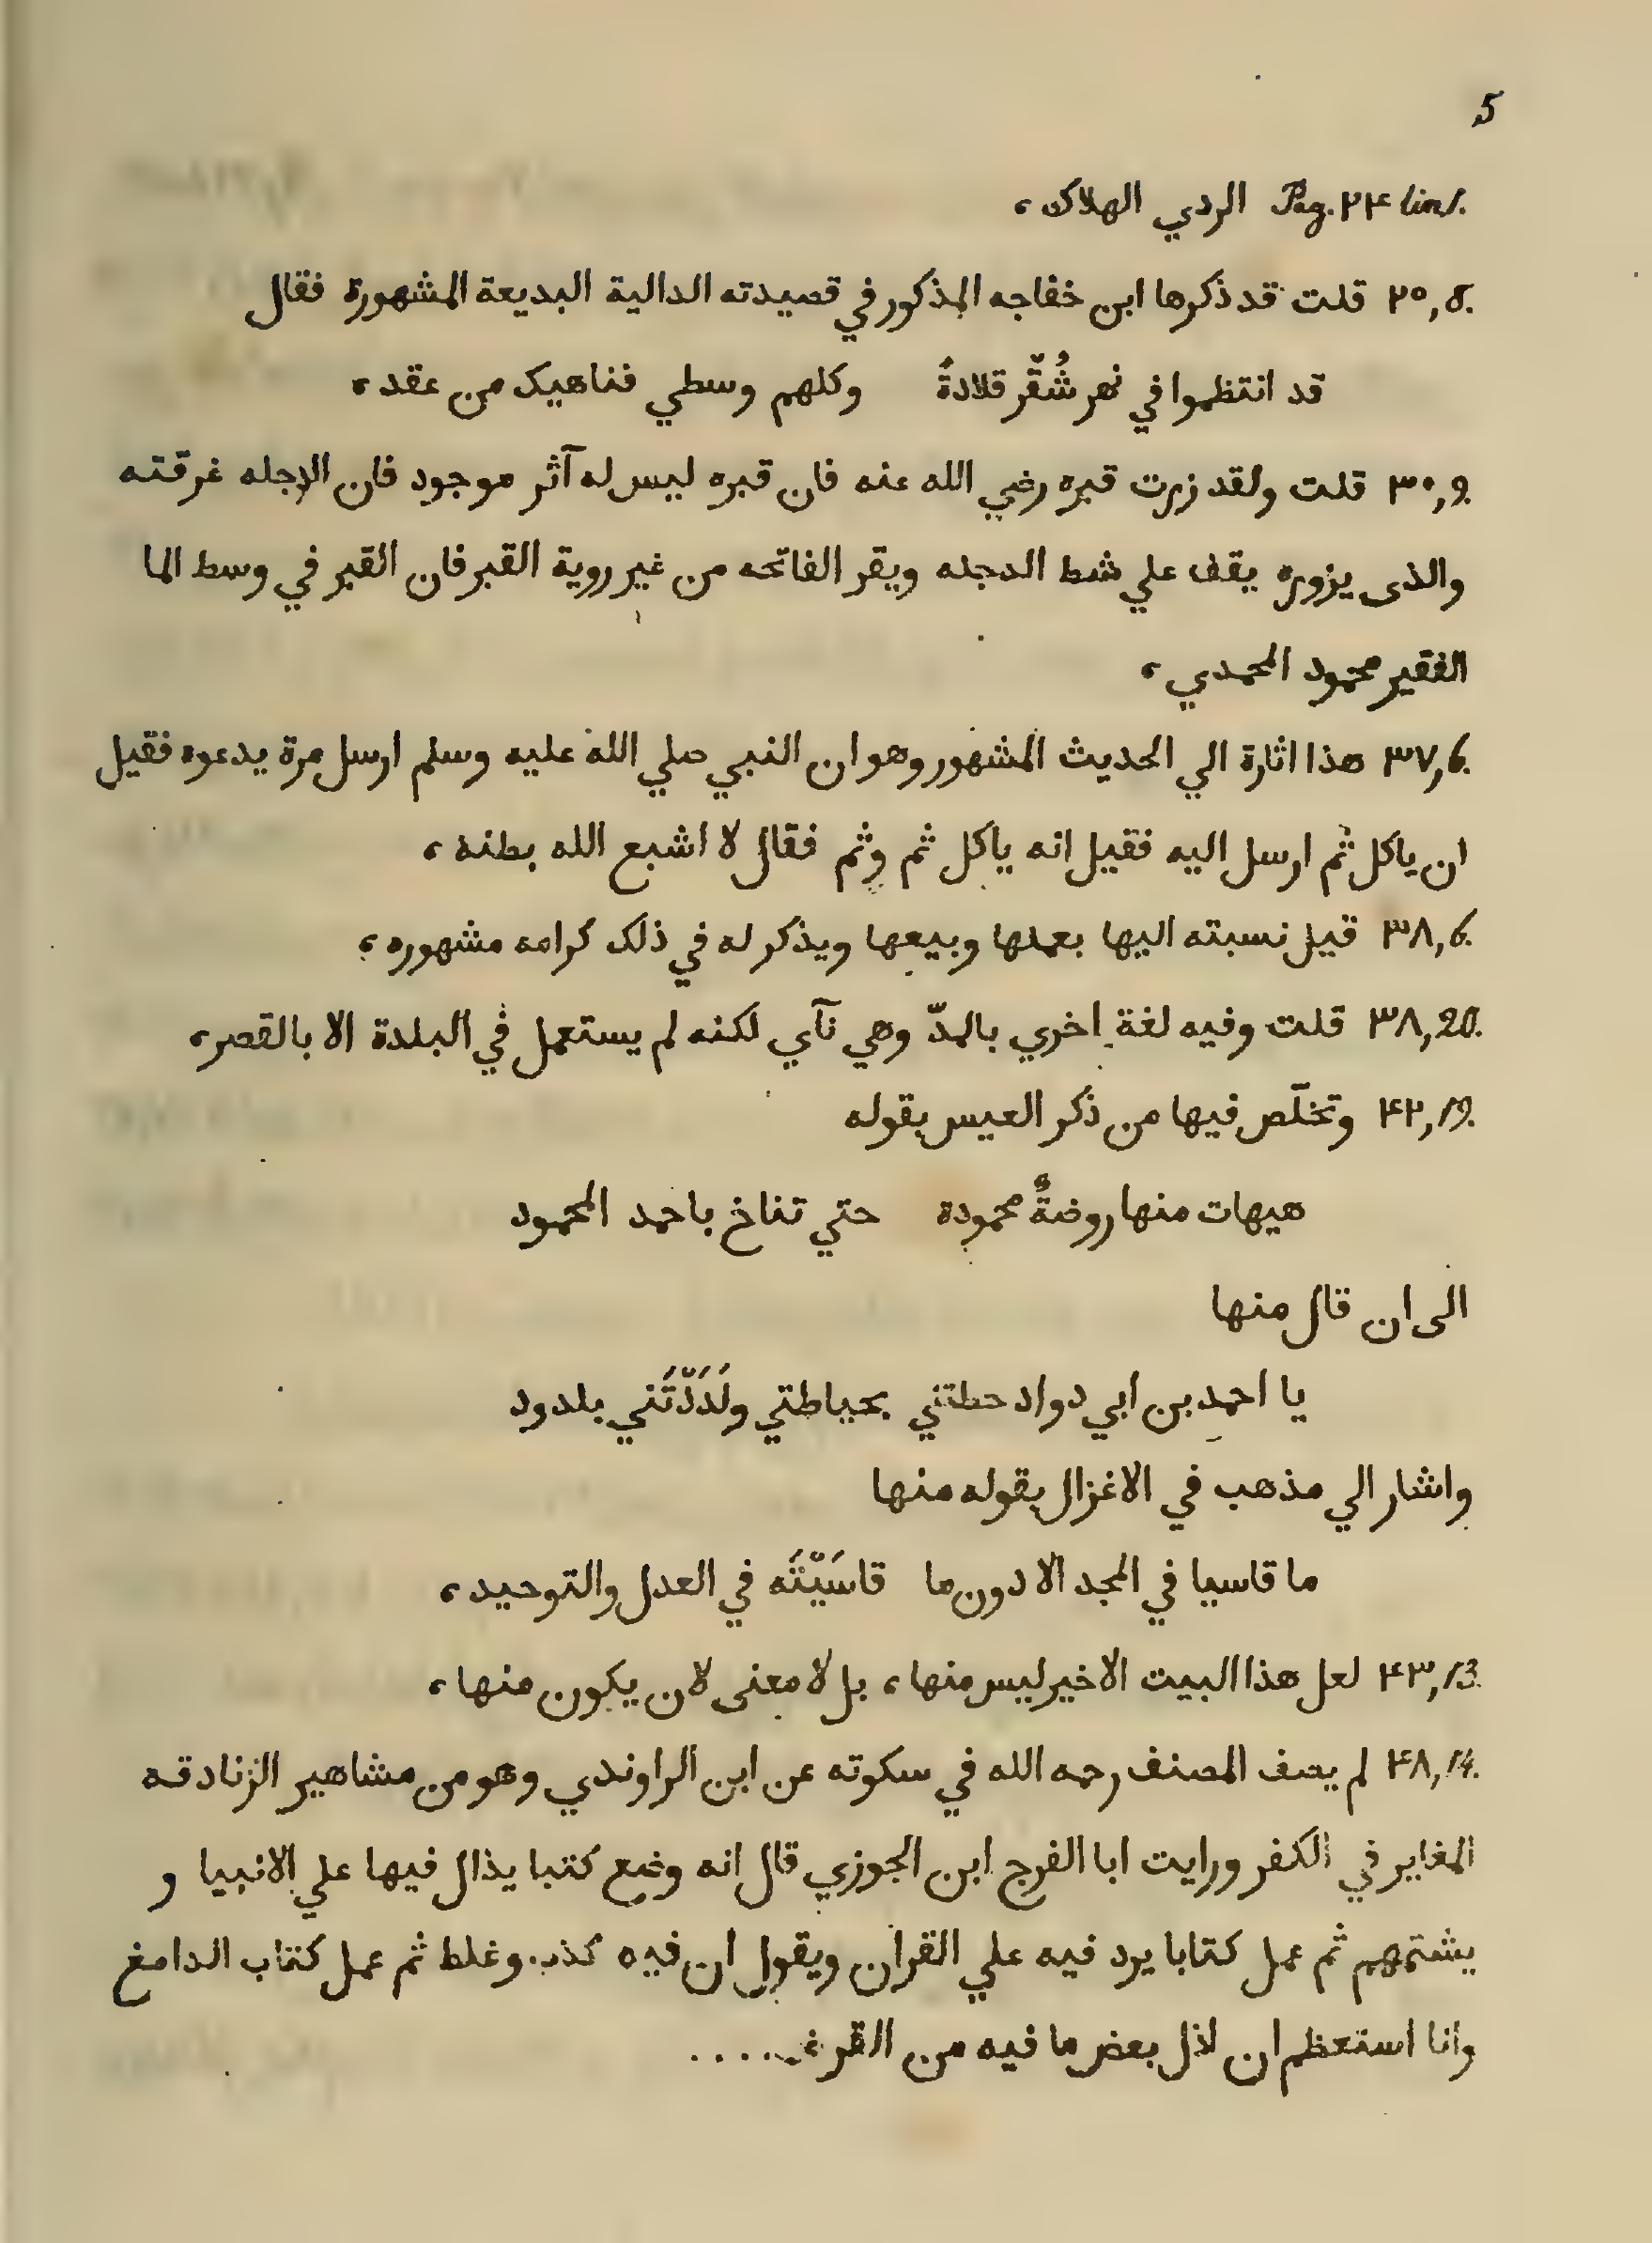 5
Pag. ٢٤ lin 1. الردي الهلاك ،
٢٥, 8. قلت قد ذكرها ابن خفاجه المذكور في قصيدته الدالية البديعة المشهورة فقال
قد انتظموا في نهر شُقّر قلادةً وكلهم وسطي فناهيك من عقد ،
٣٠, 9. قلت ولقد زرت قبره رضي الله عنه فان قبره ليس له آثر موجود فان الدجله غرقته
والذى يزوره يقف علي شط الدجله ويقر الفاتحه من غير روية القبر فان القبر في وسط الما
الفقير محمود المحمدي ،
٣٧, 6. هذا اثارة الي الحديث المشهور وهو ان النبي صلي الله عليه وسلم ارسل مرة يدعوه فقيل
ان ياكل ثم ارسل اليه فقيل انه ياكل ثم وثم فقال لا اشبع الله بطنه ،
٣٨, 6. قيل نسبته اليها بعملها وبيعها ويذكر له في ذلك كرامه مشهوره ،
٣٨, 20. قلت وفيه لغة اخري بالمدّ وهي نآي لكنه لم يستعمل في البلدة الا بالقصر ،
٤٢, 19. وتخلّص فيها من ذكر العيس بقوله
هيهات منها روضةٌ محمودة حتي تناخ باحمد المحمود
الى ان قال منها
يا احمد بن ابي دواد حطتني بحياطتي ولَدَدّتَني بلدود
واشار الي مذهب في الاغزال بقوله منها
ما قاسيا في المجد الا دون ما قاسَيْتَه في العدل والتوحيد ،
٤٣, 13. لعل هذا البيت الاخير ليس منها ، بل لا معنى لان يكون منها ،
٤٨, 14. لم يصف المصنف رحمه الله في سكوته عن ابن الراوندي وهو من مشاهير الزنادقه
المغاير في الكفر ورايت ابا الفرج ابن الجوزي قال انه وضع كتبا يذال فيها علي الانبيا و
يشتمهم ثم عمل كتابا يرد فيه علي القران ويقول ان فيه كذب وغلط ثم عمل كتاب الدامغ
وانا استعظم ان لاذل بعض ما فيه من . . . . .